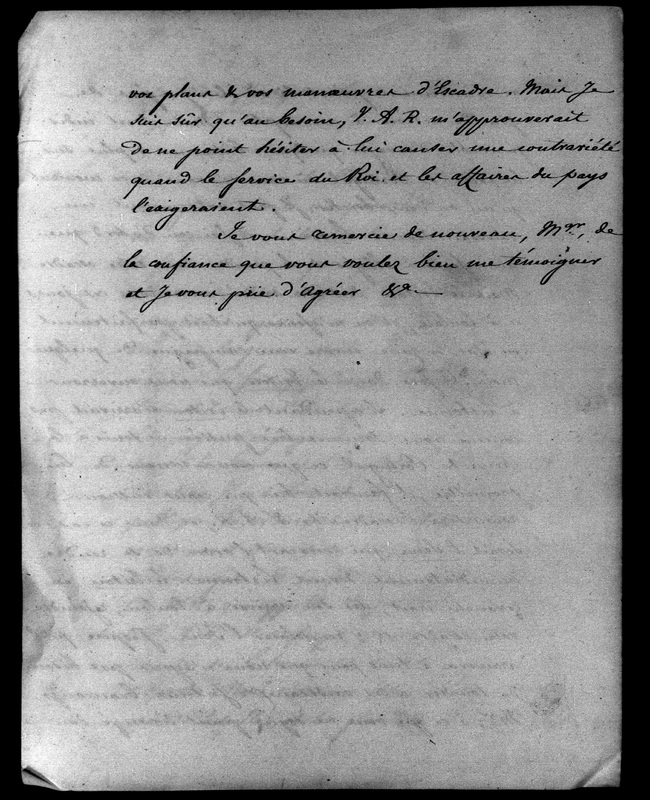 vos plans & vos manœuvres d'Escadre. Mais je
suis sûr qu'au besoin, V. A. R. m'approuverait
de ne point hésiter à lui causer une contrariété
quand le service du Roi et les affaires du pays
l'exigeraient.
Je vous remercie de nouveau, Mgr, de
la confiance que vous voulez bien me témoigner
et je vous prie d'agréer &a.